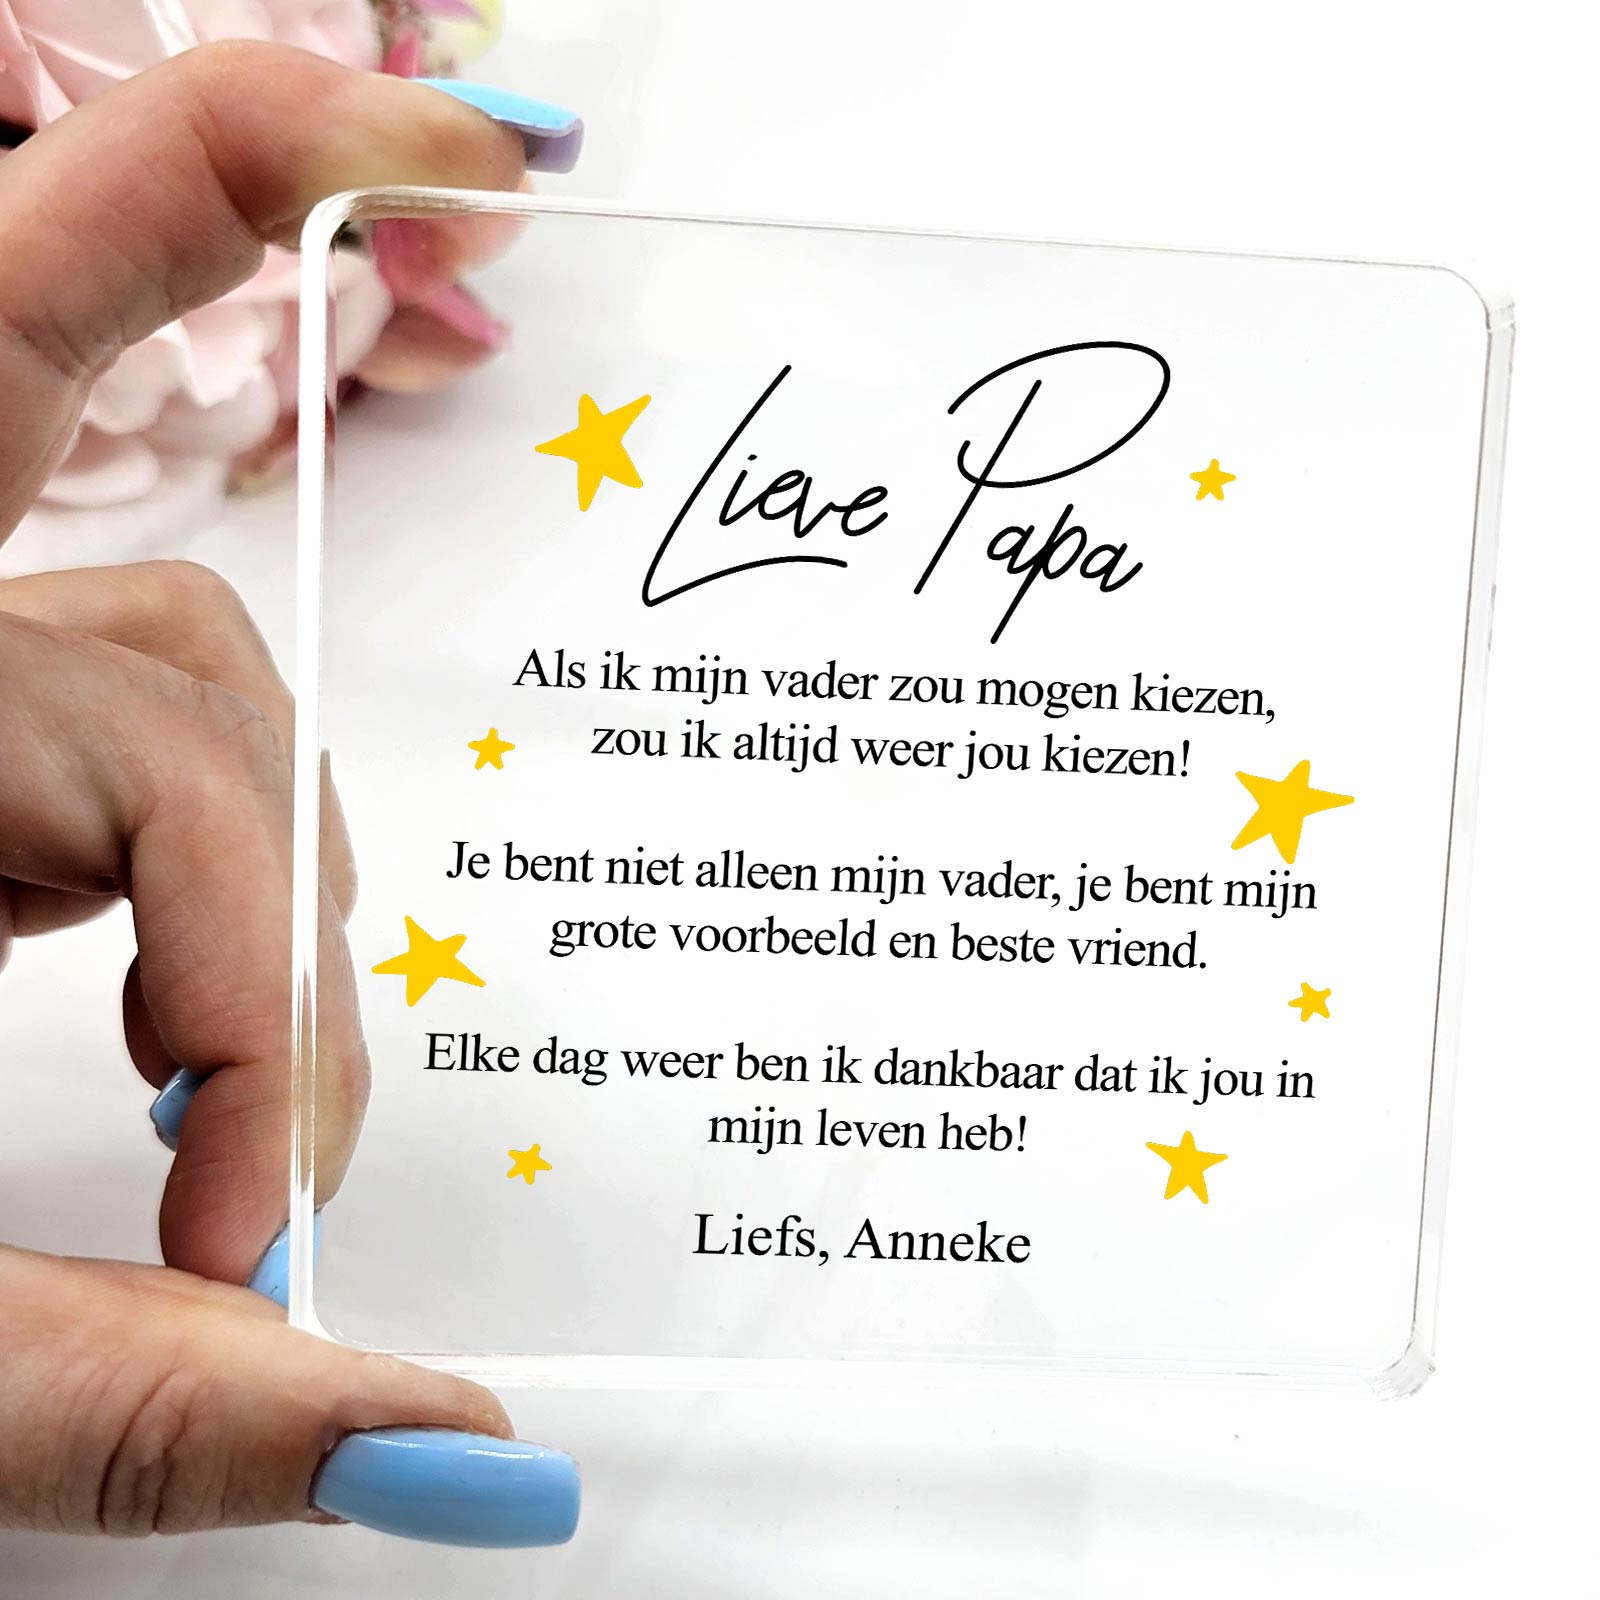 Lieve Papa
Als ik mijn vader zou mogen kiezen,
zou ik altijd weer jou kiezen!
Je bent niet alleen mijn vader, je bent mijn
grote voorbeeld en beste vriend.
Elke dag weer ben ik dankbaar dat ik jou in
mijn leven heb!
Liefs, Anneke